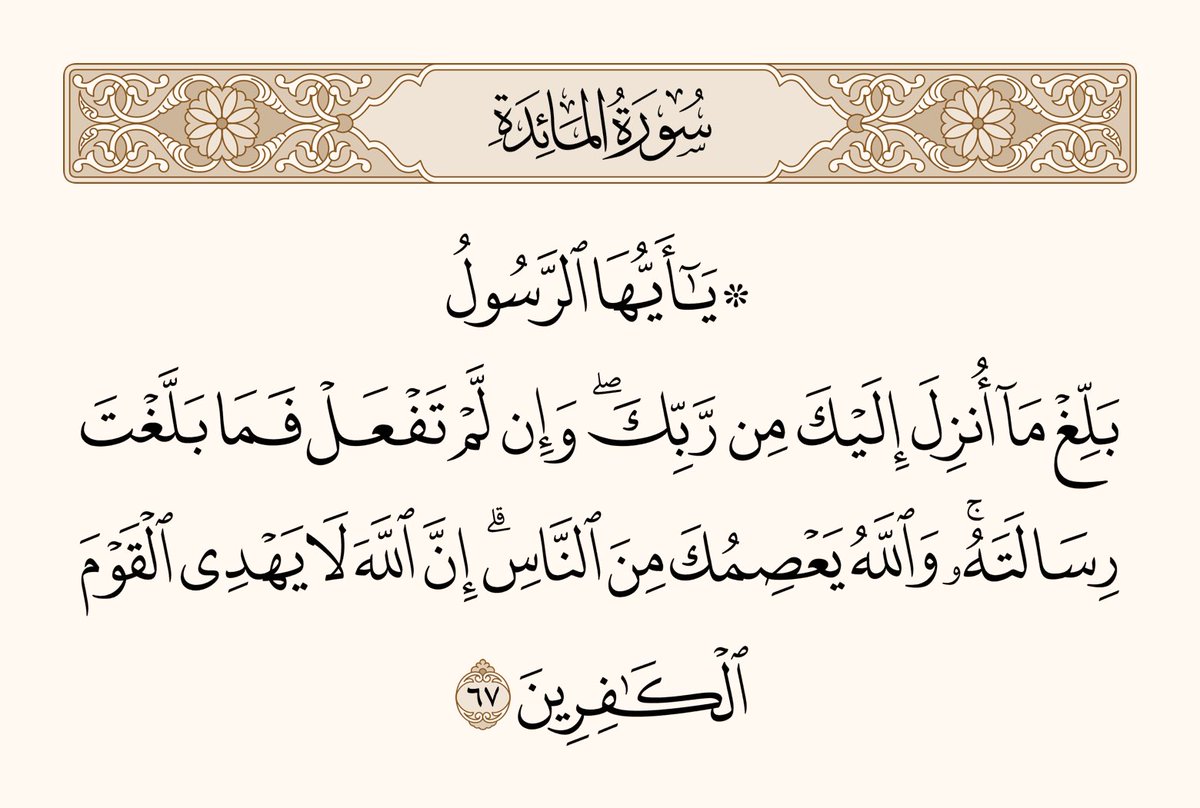 سُورَةُ المَائِدَةِ
۞ يَـٰٓأَيُّهَا ٱلرَّسُولُ
بَلِّغۡ مَآ أُنزِلَ إِلَيۡكَ مِن رَّبِّكَۖ وَإِن لَّمۡ تَفۡعَلۡ فَمَا بَلَّغۡتَ
رِسَالَتَهُۥۚ وَٱللَّهُ يَعۡصِمُكَ مِنَ ٱلنَّاسِۗ إِنَّ ٱللَّهَ لَا يَهۡدِي ٱلۡقَوۡمَ
ٱلۡكَٰفِرِينَ ٦٧